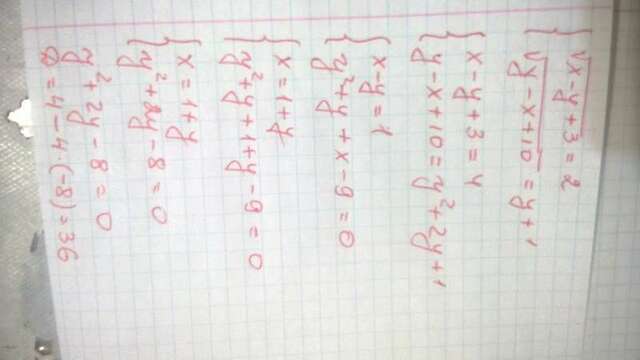 √x-y+3 = 2
√y-x+10 = y+1
x-y+3=4
y-x+10=y²+2y+1
x-y=1
y²+y+x-9=0
x=1+y
y²+y+1+y-9=0
x=1+y
y²+2y-8=0
y²+2y-8=0
D=4-4·(-8)=36